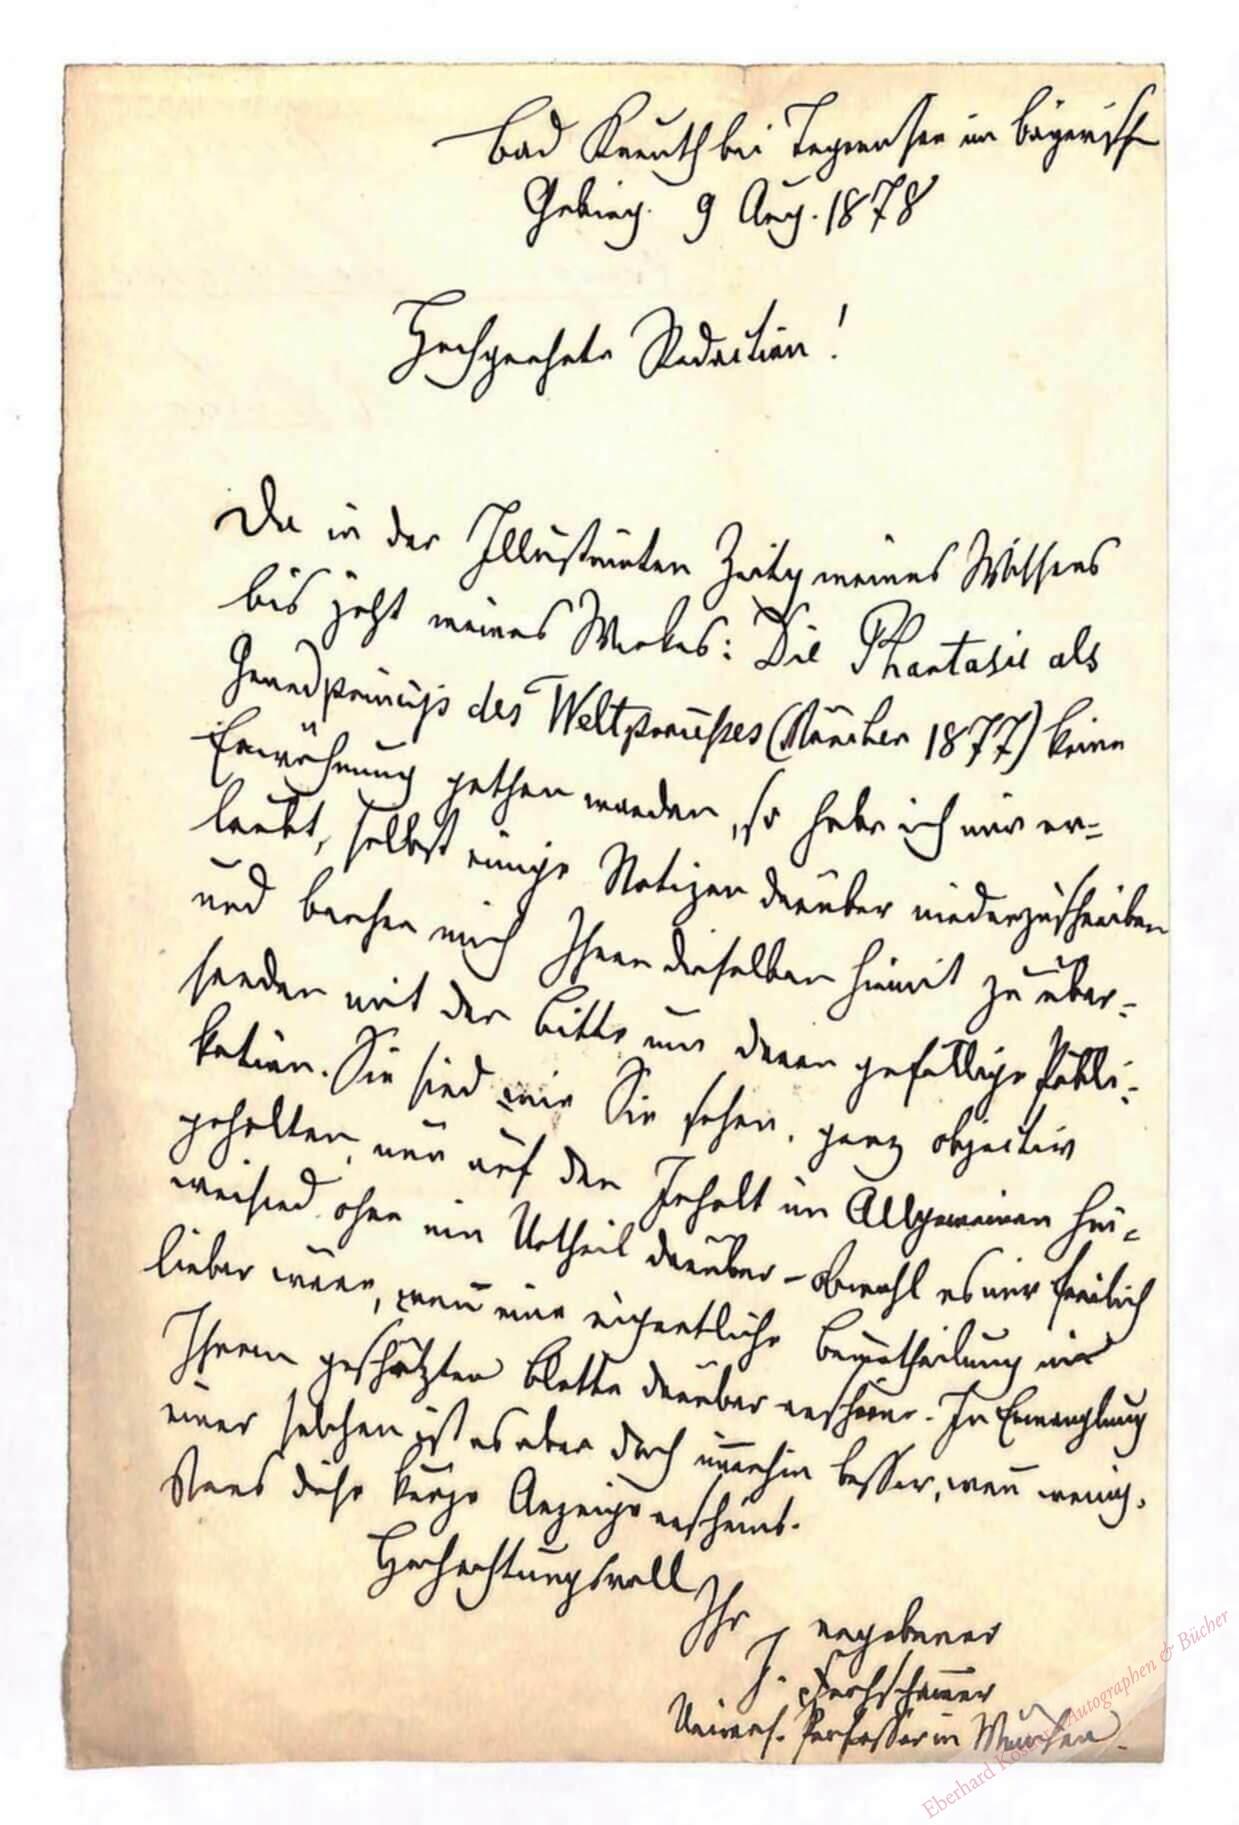 Bad Kreuth bei Tegernsee im bayerisch
Gebirg. 9 Aug. 1878
Hochgeehrte Redaction!
Da in der Illustrirten Zeitg meines Wissens
bis jetzt meines Werkes: Die Phantasie als
Grundprincip des Weltprocesses (München 1877) keine
Erwähnung gethan worden, so habe ich mir er-
laubt, selbst einige Notizen darüber niederzuschreiben
und beehre mich Ihnen dieselben hiemit zu über-
senden mit der Bitte um deren gefällige Publi-
kation. Sie sind wie Sie sehen, ganz objectiv
gehalten, nur auf den Inhalt im Allgemeinen hin-
weisend ohne ein Urtheil darüber – obwohl es mir freilich
lieber wäre, wenn eine eigentliche Beurtheilung in
Ihrem geschätzten Blatte darüber erschiene. In Ermanglung
einer solchen ist es aber doch immerhin besser, wenn wenig-
stens diese kurze Anzeige erscheint.
Hochachtungsvoll
Ihr ergebener
J. Frohschammer
Univers. Professor in München.
Eberhard Köstler Autographen & Bücher